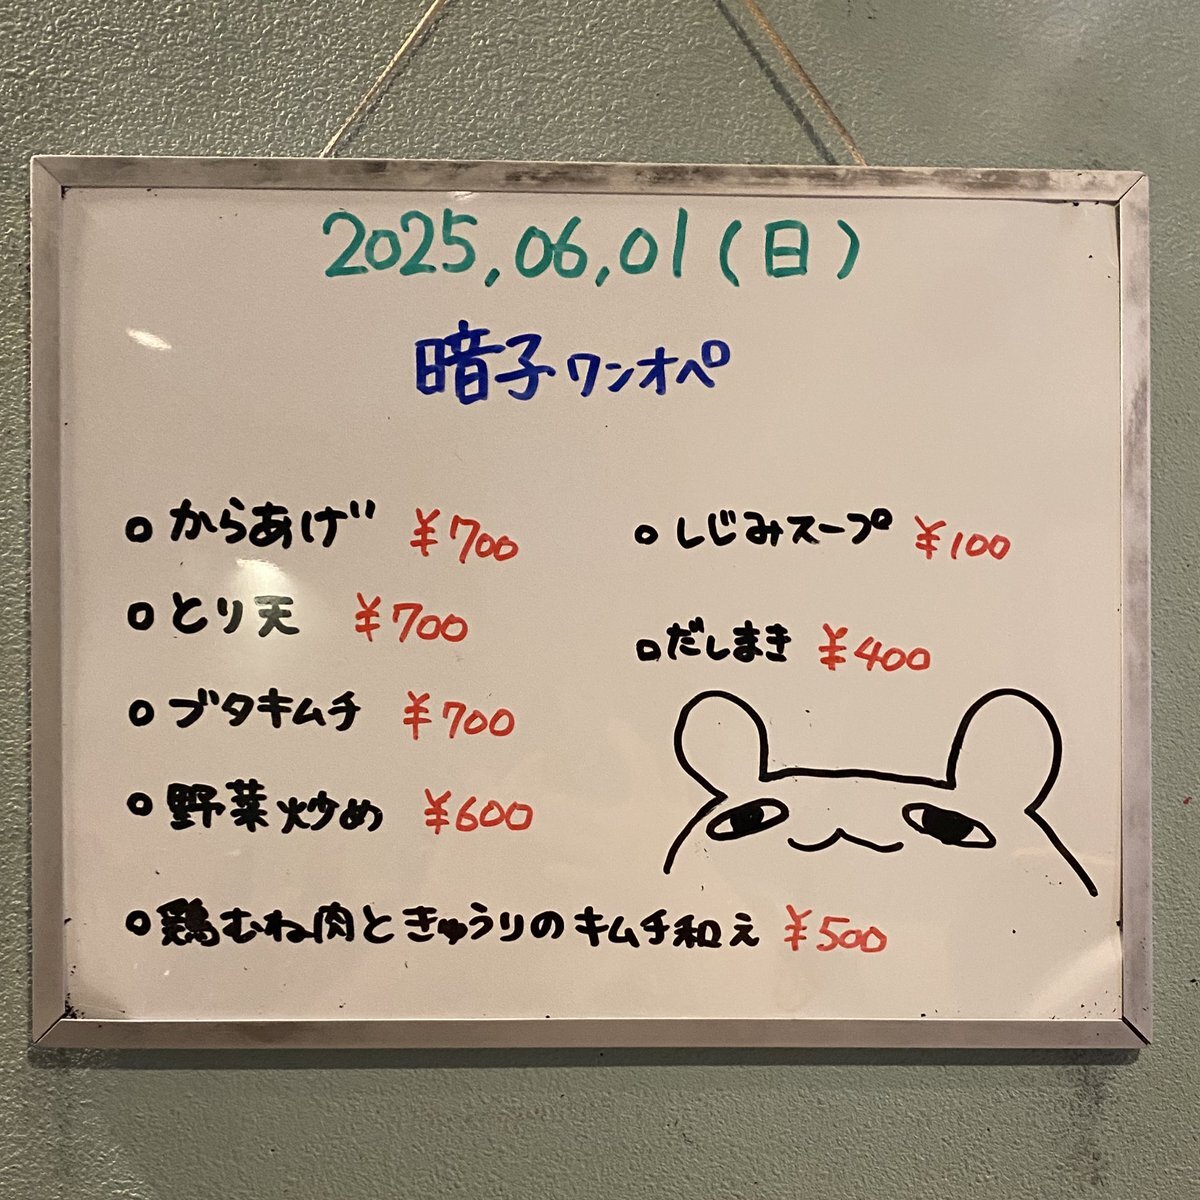 2025.06.01(日)
暗子ワンオペ
からあげ ¥700
とり天 ¥700
ブタキムチ ¥700
野菜炒め ¥600
鶏むね肉ときゅうりのキムチ和え ¥500
しじみスープ ¥100
だしまき ¥400